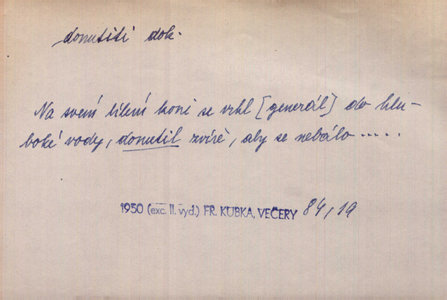 donutiti dok.
Na svém bílém koni se vrhl [generál] do hlu-
boké vody, donutil zvíře, aby se nebálo.....
1950 (exc. II. vyd.) FR. KUBKA, VEČERY 84, 19